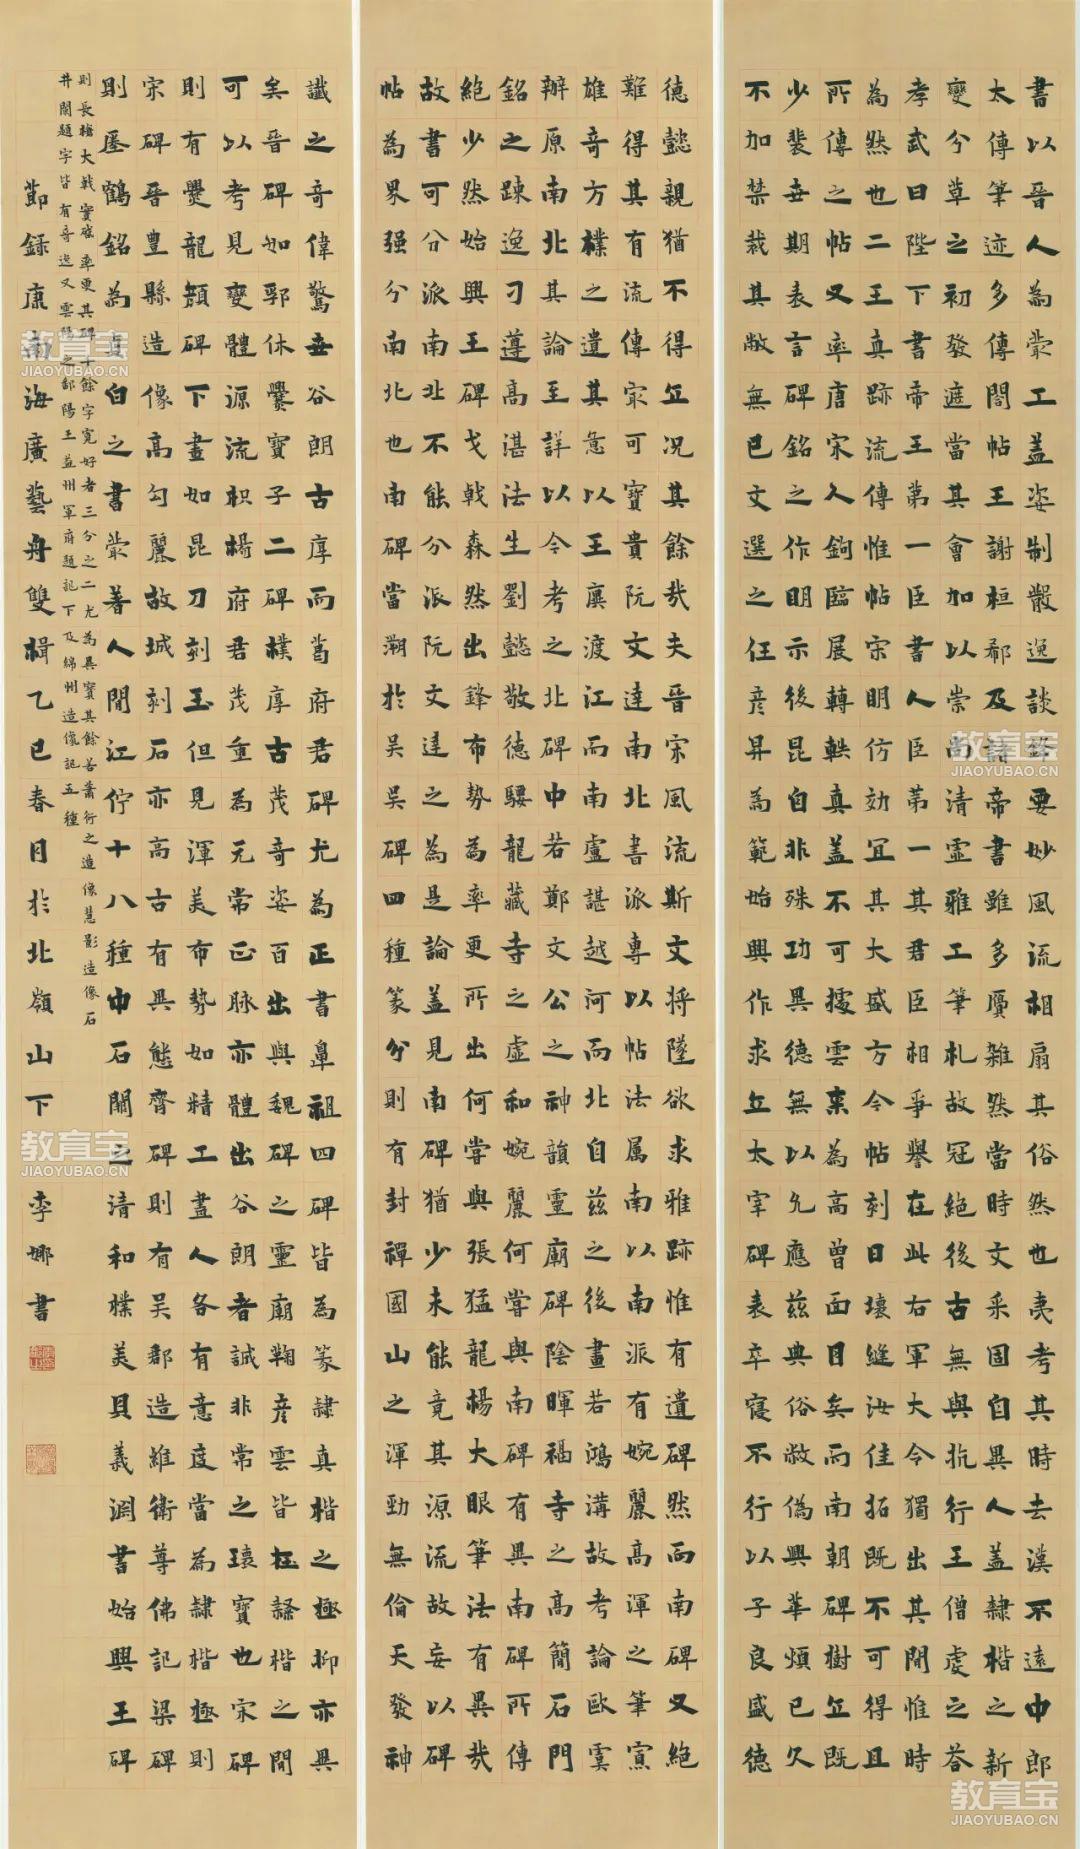 書以晉人為冣工蓋姿制散逸談鋒要妙風流相扇其俗然也夷考其時去漢不遠中郎
太傳筆迹多傳閣帖王謝桓郗及諸帝書雖多贗雜然當時文采固自異人蓋隸楷之新
變兮草之初發遮當其會加以崇尚清虛雅工筆札故冠絕後古無與抗行王僧虔之答
孝武曰陛下書帝王第一臣書人臣第一其君臣相爭譽在此右軍大令獨出其間惟時
為然也二王真跡流傳惟帖宋明仿効宜其大盛方今帖刻日壞縫汝佳拓既不可得且
所傳之帖又率唐宋人鉤臨展轉軼真蓋不可據雲來為高曾面目矣而南朝碑樹立既
少裴世期表言碑銘之作明示後昆自非殊功異德無以允應茲典俗敝偽興華煩已久
不加禁裁其敝無已文選之任彥昇為範始興作求立太宰碑表卒寢不行以子良盛德
德懿親猶不得立况其餘哉夫晉宋風流斯文將墜欲求雅跡惟有遺碑然而南碑又絕
難得其有流傳冣可寶貴阮文達南北書派專以帖法属南以南派有婉麗高渾之筆寡
雄奇方樸之遺其意以王廙渡江而南盧諶越河而北自茲之後畫若鴻溝故考論歐虞
辨原南北其論至詳以今考之北碑中若鄭文公之神韻靈廟碑陰暉福寺之高簡石門
銘之踈逸刁遵高湛法生劉懿敬德騕龍藏寺之虛和婉麗何嘗與南碑有異南碑所傳
絕少然始興王碑戈戟森然出鋒布勢為率更所出何嘗與張猛龍楊大眼筆法有異哉
故書可分派南北不能分派阮文達之為是論蓋見南碑猶少未能竟其源流故妄以碑
帖為界强分南北也南碑當溯於吳吳碑四種篆分則有封禪國山之渾勁無倫天發神
讖之奇偉驚世谷朗古厚而葛府君碑尤為正書鼻祖四碑皆為篆隸真楷之極抑亦異
矣晉碑如郛休爨寶子二碑樸厚古茂奇姿百出與魏碑之靈廟鞠彥雲皆在隸楷之間
可以考見變體源流枳楊府君茂重為元常正脉亦體出谷朗者誠非常之瓌寶也宋碑
則有爨龍顏碑下畫如昆刀刻玉但見渾美布勢如精工畫人各有意度當為隸楷極則
宋碑晉豐縣造像高勾麗故城刻石亦高古有異態齊碑則有吳郡造維衛尊佛記梁碑
則瘞鶴銘為貞白之書冣著人間江佇十八種中石闕之清和樸美貝義淵書始興王碑
則長槍大戟實啓率更其碑千餘字完好者三分之二尤為異寶其餘若蕭衍之造像慧影造像石
井闌題字皆有奇逸又雲陽之鄱陽王益州軍府題記下及綿州造像記五種
節録康南海廣藝舟雙楫乙巳春月於北嶺山下李娜書
教育宝
JIAOYUBAO.CN
教育宝
JIAOYUBAO.CN
教育宝
JIAOYUBAO.CN
教育宝
JIAOYUBAO.CN